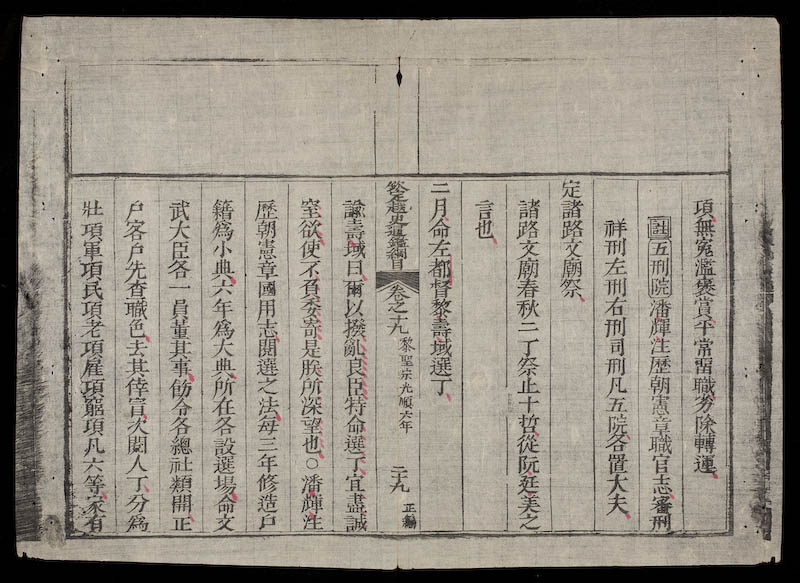 項無冤濫褒賞平常留職劣除轉運
註五刑院潘輝注歷朝憲章職官志審刑
祥刑左刑右刑司刑凡五院各置大夫
定諸路文廟祭
諸路文廟春秋二丁祭止十哲從阮廷美之
言也
二月命左都督黎壽域選丁
欽定越史通鑑綱目 卷之十九 黎聖宗光順六年 二十九 正編
諭壽域曰爾以撥亂良臣特命選丁宜盡誠
窒欲使不負委寄是朕所深望也○潘輝注
歷朝憲章國用志閱選之法每三年修造戶
籍爲小典六年爲大典所在各設選場命文
武大臣各一員董其事飭令各總社類開正
戶客戶先查職色去其倖官次閱人丁分爲
壯項軍項民項老項雇項窮項凡六等家有